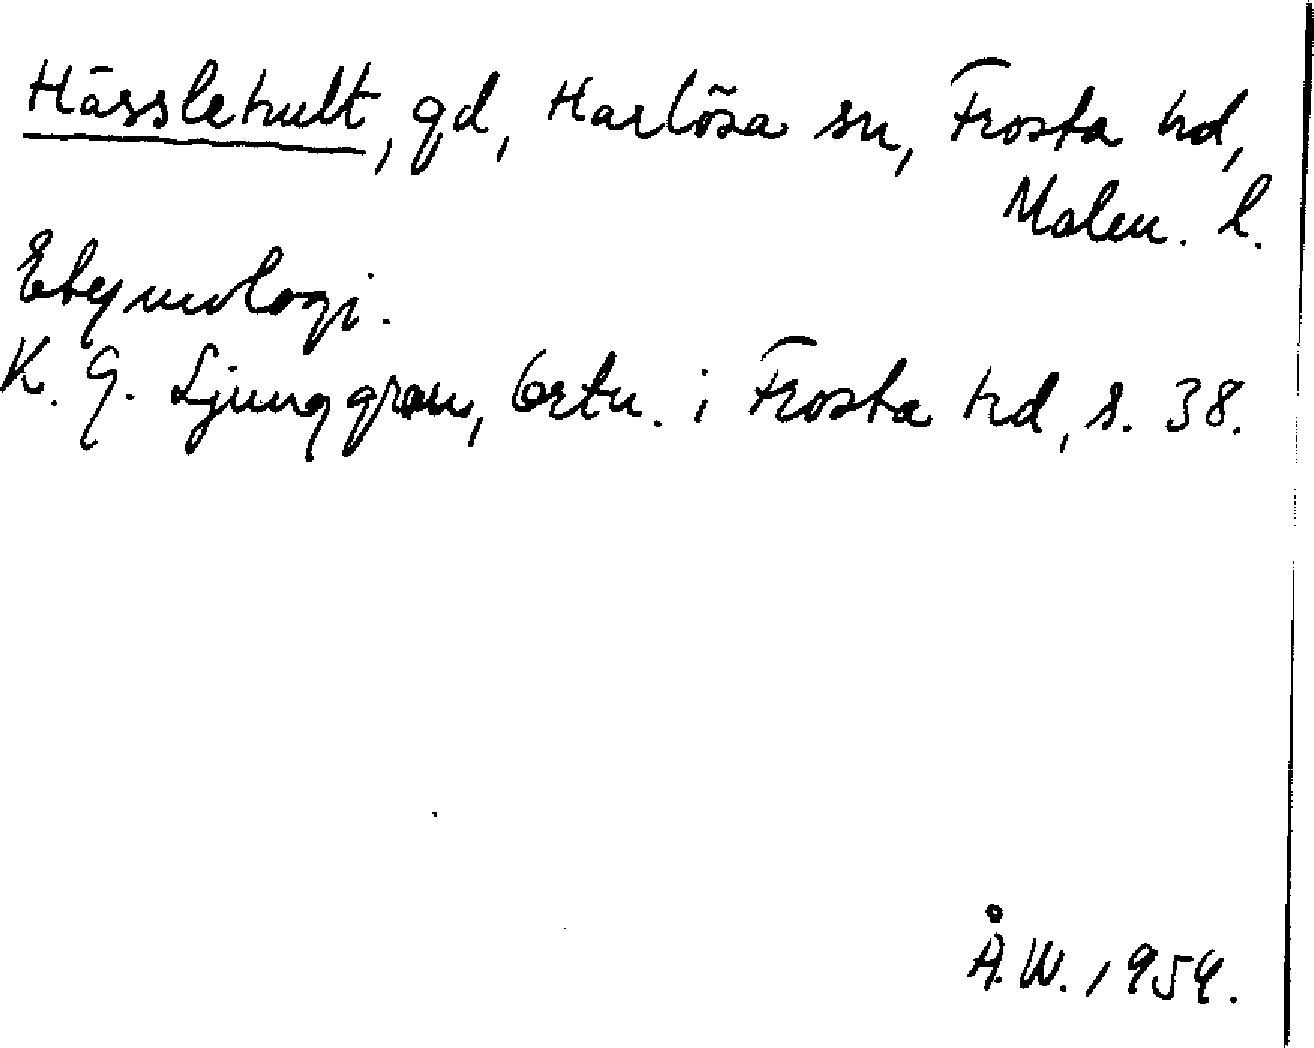 Hässlehult, gd, Harlösa sn, Frosta hd,
Malm. l.
Etymologi.
K. G. Ljunggren, Ortn. i Frosta hd, s. 38.
Å.W. 1954.